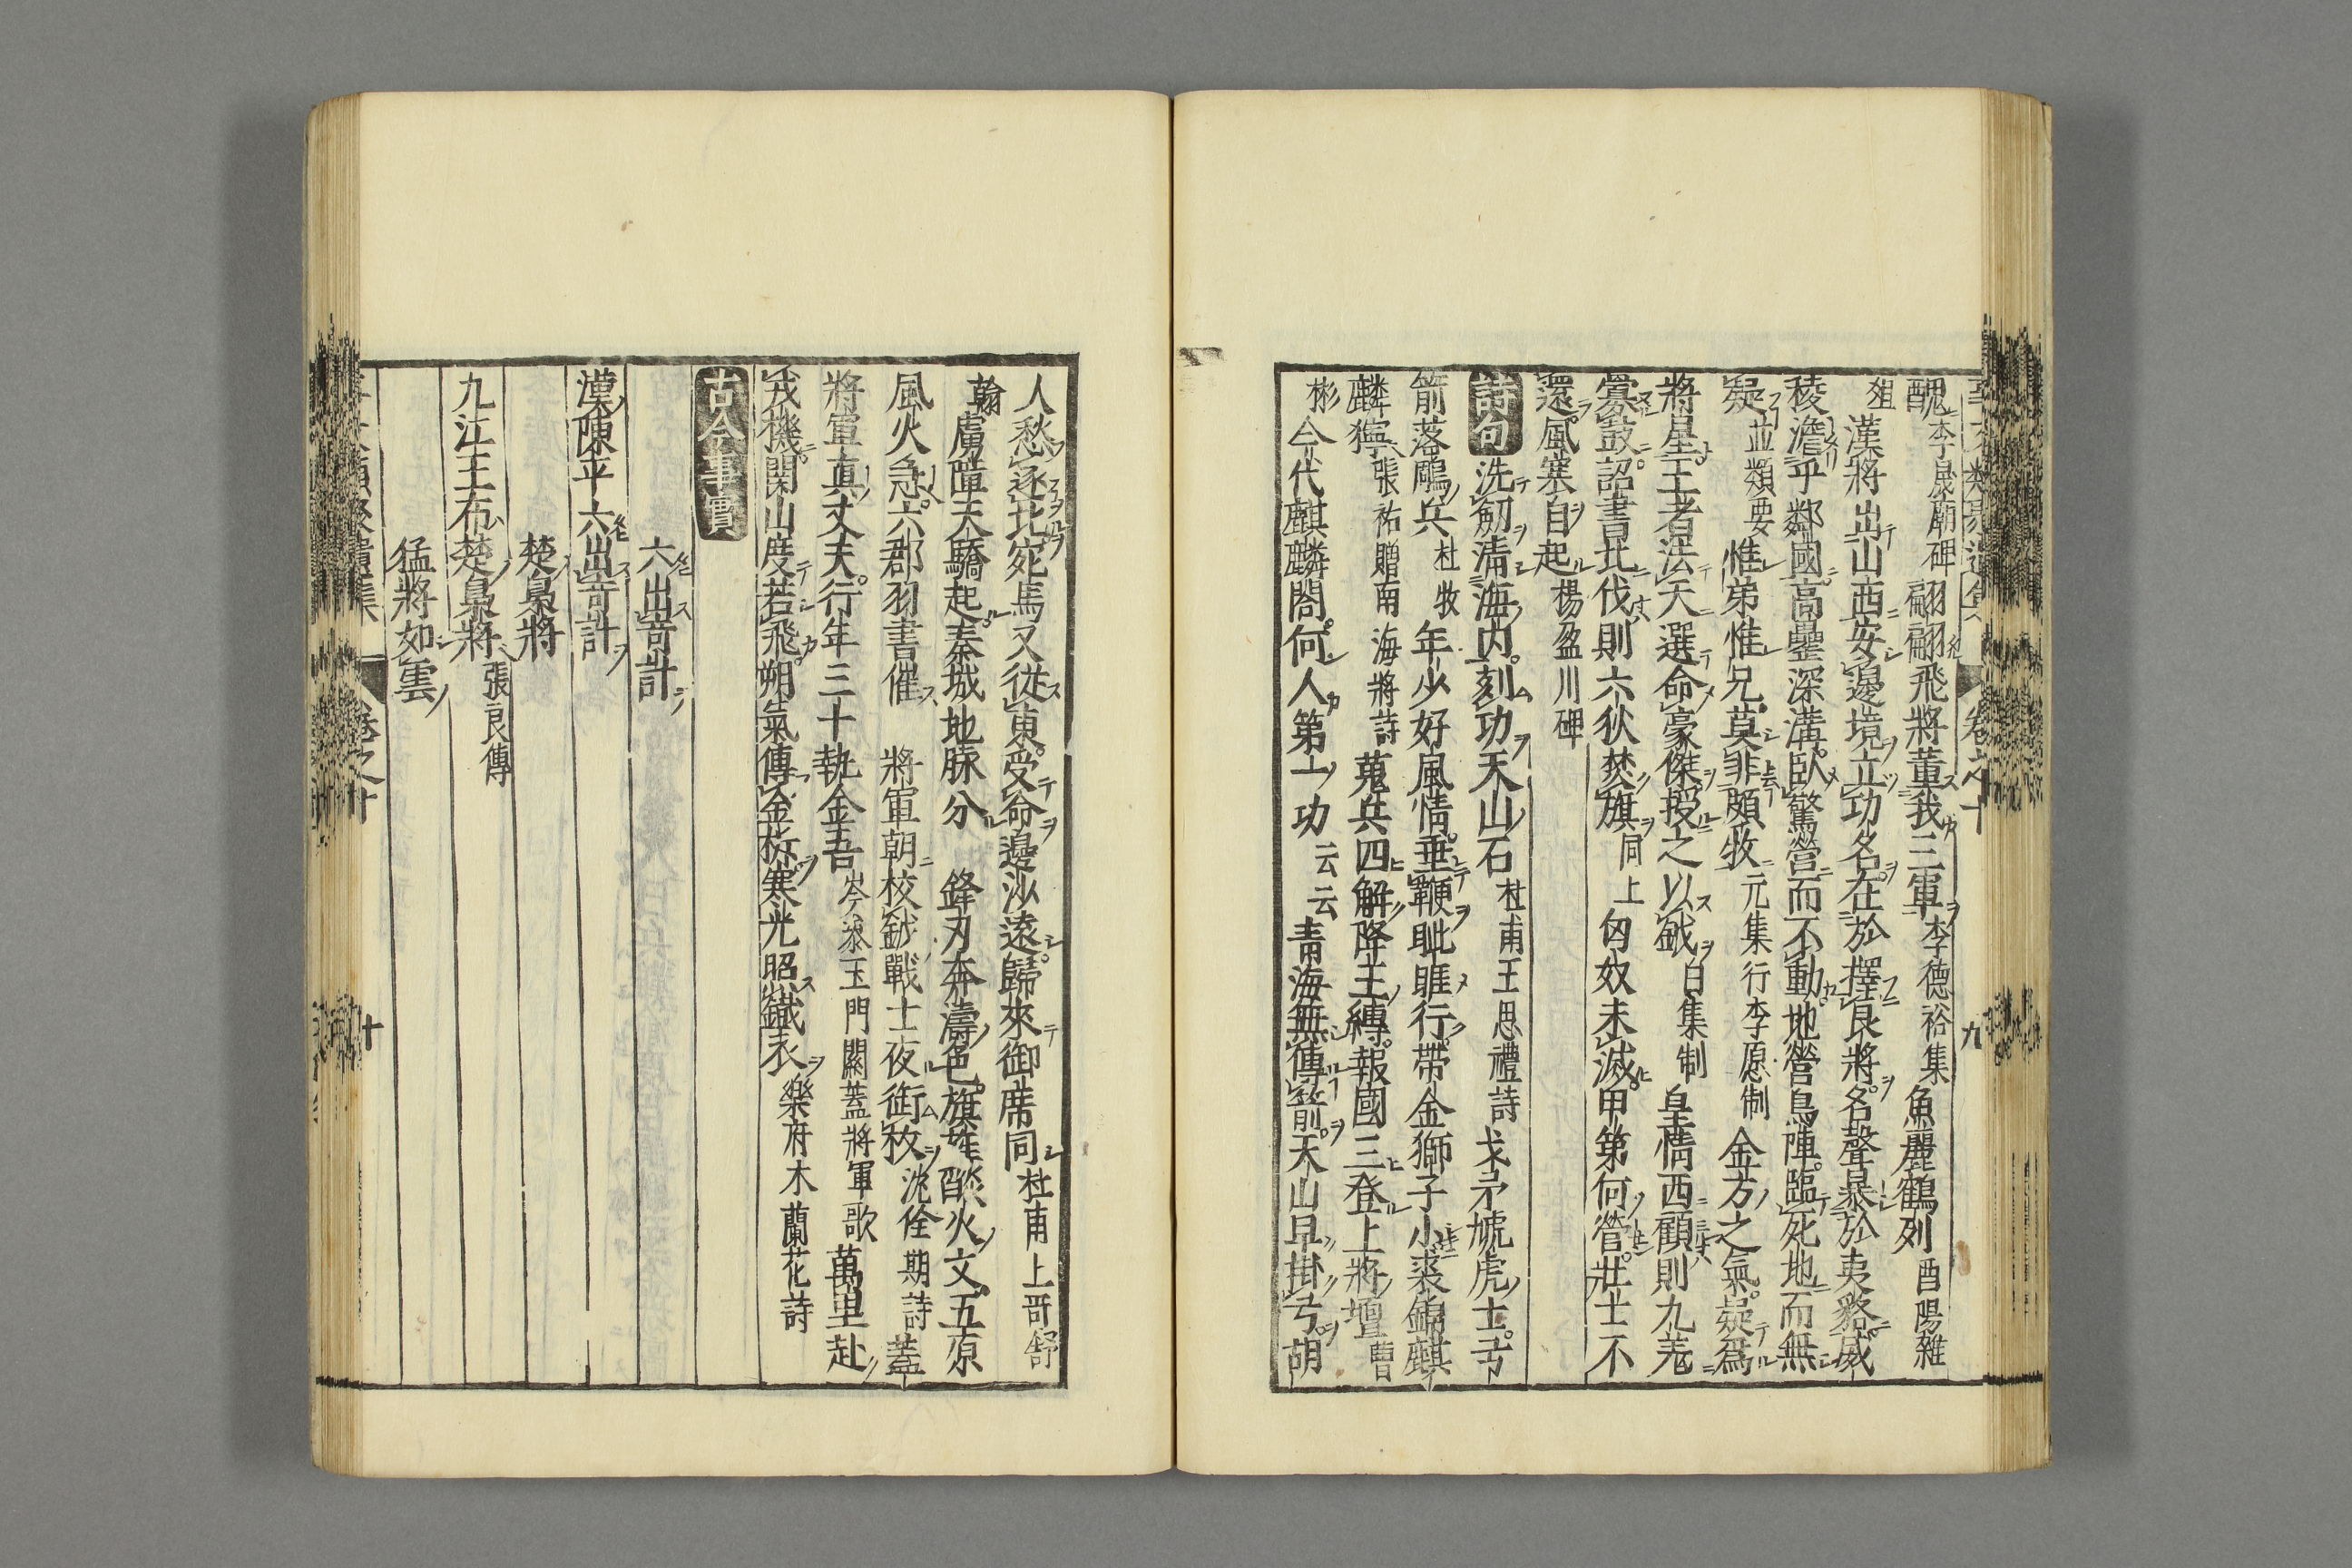 醜李晟廟碑翩翩飛將董我三軍李德裕集魚麗鶴列酉陽雜
俎漢將出山西安邊境立功名在於擇良將名聲暴於夷貉威
稜澹乎鄰國高壘深溝臥驚營而不動地營鳥陣臨死地而無
疑並類要惟弟惟兄莫非頗牧元集行李愿制金方之氣疑爲
將星王者法天選命豪傑授之以鉞白集制皇情西顧則九羌
寡鼓詔書北伐則六狄焚旗同上匈奴未滅甲第何營壯士不
還風塞自起楊盈川碑
詩句洗劒清海內刻功天山石杜甫王思禮詩戈矛虓虎士弓
箭落鵰兵杜牧年少好風情垂鞭眦睚行帶金獅子小裘錦麒
麟獰張祜贈南海將詩蒐兵四解降王縛報國三登上將壇曹
彬今代麒麟閣何人第一功云云青海無傳箭天山早掛弓胡
人愁逐北宛馬又從東受命邊沙遠歸來御席同杜甫上哥舒
翰虜障天驕起秦城地脉分鋒刃奔濤色旗旌燄火文五原
風火急六郡羽書催將軍朝校鉞戰士夜銜枚沈佺期詩蓋
將軍真丈夫行年三十執金吾岑參玉門關蓋將軍歌萬里赴
戎機関山度若飛朔氣傳金柝寒光照鐵衣樂府木蘭花詩
古今事實
六出奇計
漢陳平六出奇計
楚梟將
九江王布楚梟將張良傳
猛將如雲
卷之十
十